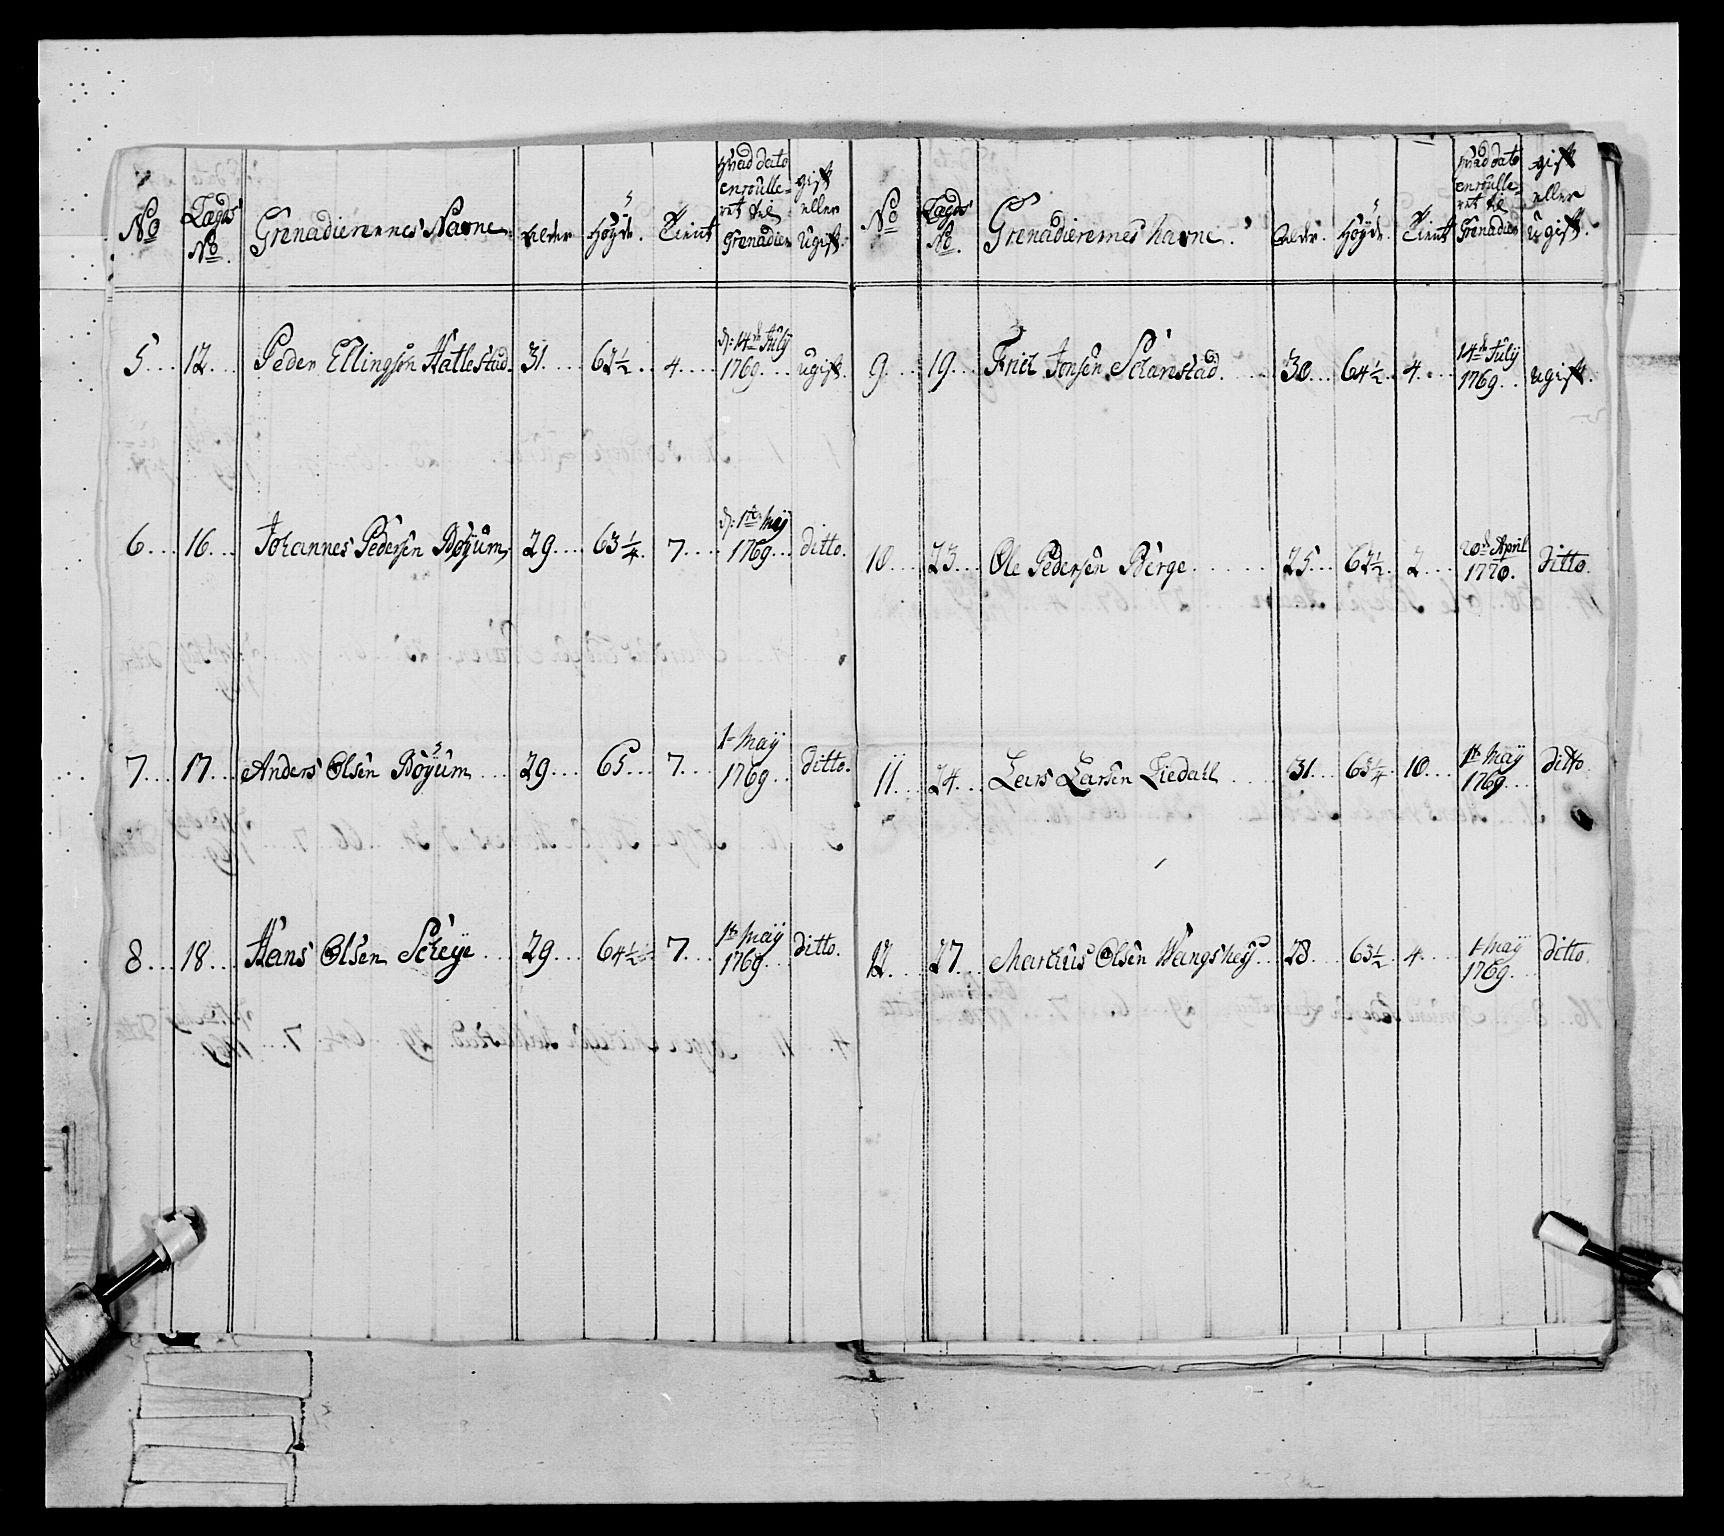 No Lægds No. Grenadierernes Navne. Alder Höyde. Tient Hvad dato enroulleret til Grenadier gift eller Ugift.
5... 12... Peder Ellingsen Hatlestad. 31.... 62½.. 4.... d: 14de July 1769.... ugift.
6... 16... Johannes Pedersen Böyum, 29.... 63¼.. 7.... d: 1te May 1769... ditto.
7... 17... Anders Olsen Böyum.... 29.... 65.... 7.... 1te May 1769... ditto.
8... 18... Hans Olsen Scheye.... 29.... 64½.. 7.... 1te May 1769... ditto.
No Lægds No. Grenadierernes Navne. Alder. Höyde. Tient Hvad dato enroulleret til Grenadier gift eller Ugift.
9... 19... Frich Jonsen Scharestad..... 30... 64½.. 4.... 14de July 1769.... ugift.
10... 23... Ole Pedersen Berge....... 25... 62½.. 2.... 20de April 1770. ditto.
11... 24... Lars Larsen Liedahl.... 31.. 63¼.. 10.... 1te May 1769.... ditto
12... 27... Marcus Olsen Wangsnes.. 28.... 63½.. 4.... 1te May 1769.... ditto.